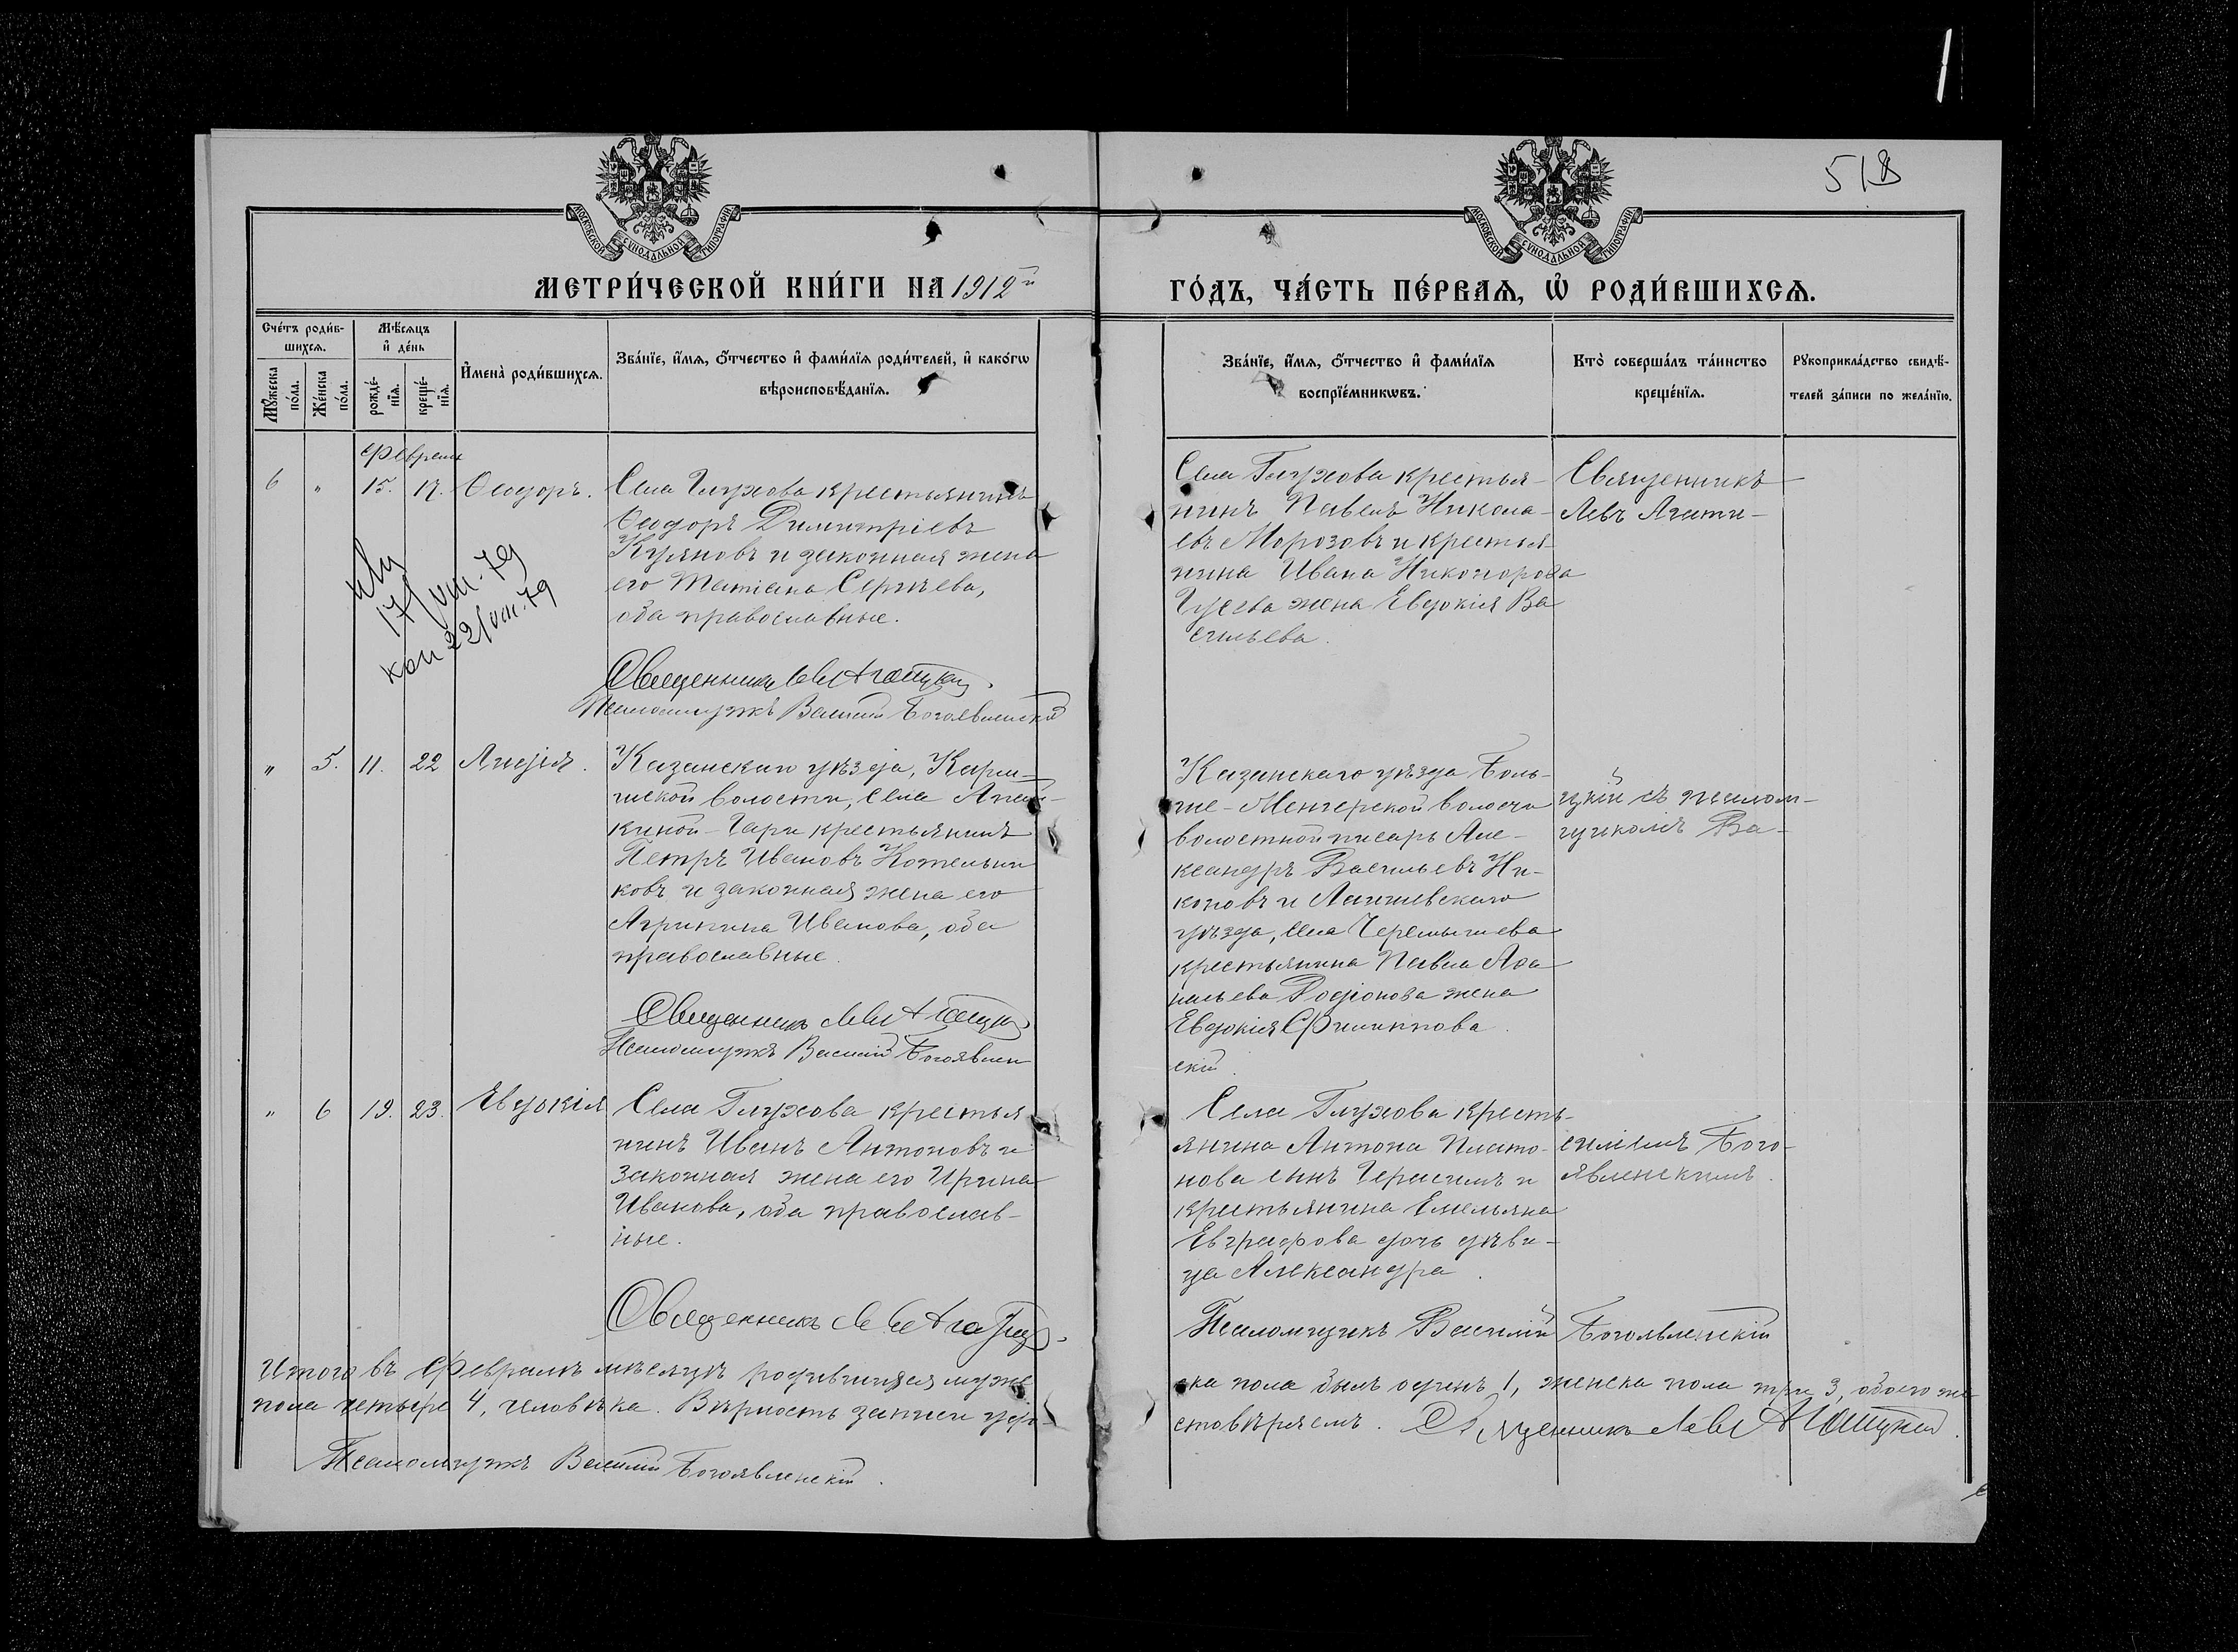 518
МОСКОВСКОЙ СѴНОДАЛЬНОЙ ТИПОГРАФІИ
МОСКОВСКОЙ СѴНОДАЛЬНОЙ ТИПОГРАФІИ
МЕТРИ́ЧЕСКОЙ КНИ́ГИ НА 1912й
ГО́ДЪ, ЧА́СТЬ ПЕ́РВАЯ, Ѡ҆ РОДИ́ВШИХСЯ.
Сче́тъ роди́в-
шихся.
Мѣ́сяцъ
и҆ де́нь
И҆мена̀ роди́вшихся.
Зва́нїе, и҆́мя, ѻ҆́тчество и҆ фами́лїя роди́телей, и҆ како́гѡ
вѣроисповѣ́данїя.
Мꙋ́жеска
по́ла.
Же́нска
по́ла.
рожде́-
нїя.
креще́-
нїя.
Зва́нїе, и҆́мя, ѻ҆́тчество и҆ фами́лїя
воспрїе́мникѡвъ.
Кто̀ соверша́лъ та́инство
креще́нїя.
Рꙋкоприкла́дство свидѣ́-
телей за́писи по жела́нїю.
Февраля
6 " 15. 17. Ѳеодоръ.
Села Глухова крестьянинъ
Ѳеодоръ Димитріевъ
Куяновъ и законная жена
его Татіана Сергѣева,
оба православные.
Священникъ Левъ Агатицкій.
Псаломщикъ Василій Богоявленскій
17/VIII-79
коп 22/VIII.79
Села Глухова крестья-
нинъ Павелъ Никола-
евъ Морозовъ и крестья-
нина Ивана Никонорова
Гусева жена Евдокія Ва
сильева.
Священникъ
Левъ Агати-
" 5. 11. 22 Лидія.
Казанскаго уѣзда, Кармы-
шской волости, села
киной-Гари крестьянинъ
Петръ Ивановъ Котельни
ковъ и законная жена его
Агрипина Иванова, оба
православные.
Священникъ Левъ Агатицкій
Псаломщикъ Василій Богоявлен
скій.
Казанскаго уѣзда Боль-
ше-Менгерской волости
волостной писарь Але-
ксандръ Васильевъ Ни-
коновъ и Лаишевскаго
уѣзда, села Черемышева
крестьянина Павла Аѳа
насьева Родіонова жена
Евдокія Филиппова.
цкій съ псалом-
щикомъ Ва-
" 6 19. 23. Евдокія
Села Глухова крестья
нинъ Иванъ Антоновъ и
законная жена его Ирина
Иванова, оба православ-
ные.
Священникъ Левъ Агатицкій.
Села Глухова кресть-
янина Антона Плато-
нова сынъ Герасимъ и
крестьянина Емельяна
Евграфова дочь дѣви-
ца Александра.
силіемъ Бого-
явленскимъ.
Псаломщикъ Василій Богоявленскій
Итого въ Февралѣ мѣсяцѣ родившихся муже
ска пола былъ одинъ 1, женска пола три 3, обоего же
пола четыре 4, человѣка. Вѣрность записи удо-
стовѣряемъ. Священникъ Левъ Агатицкій.
Псаломщикъ Василій Богоявленскій.